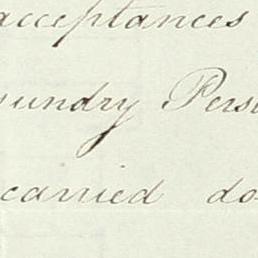 acceptances
sundry Pers
carried do